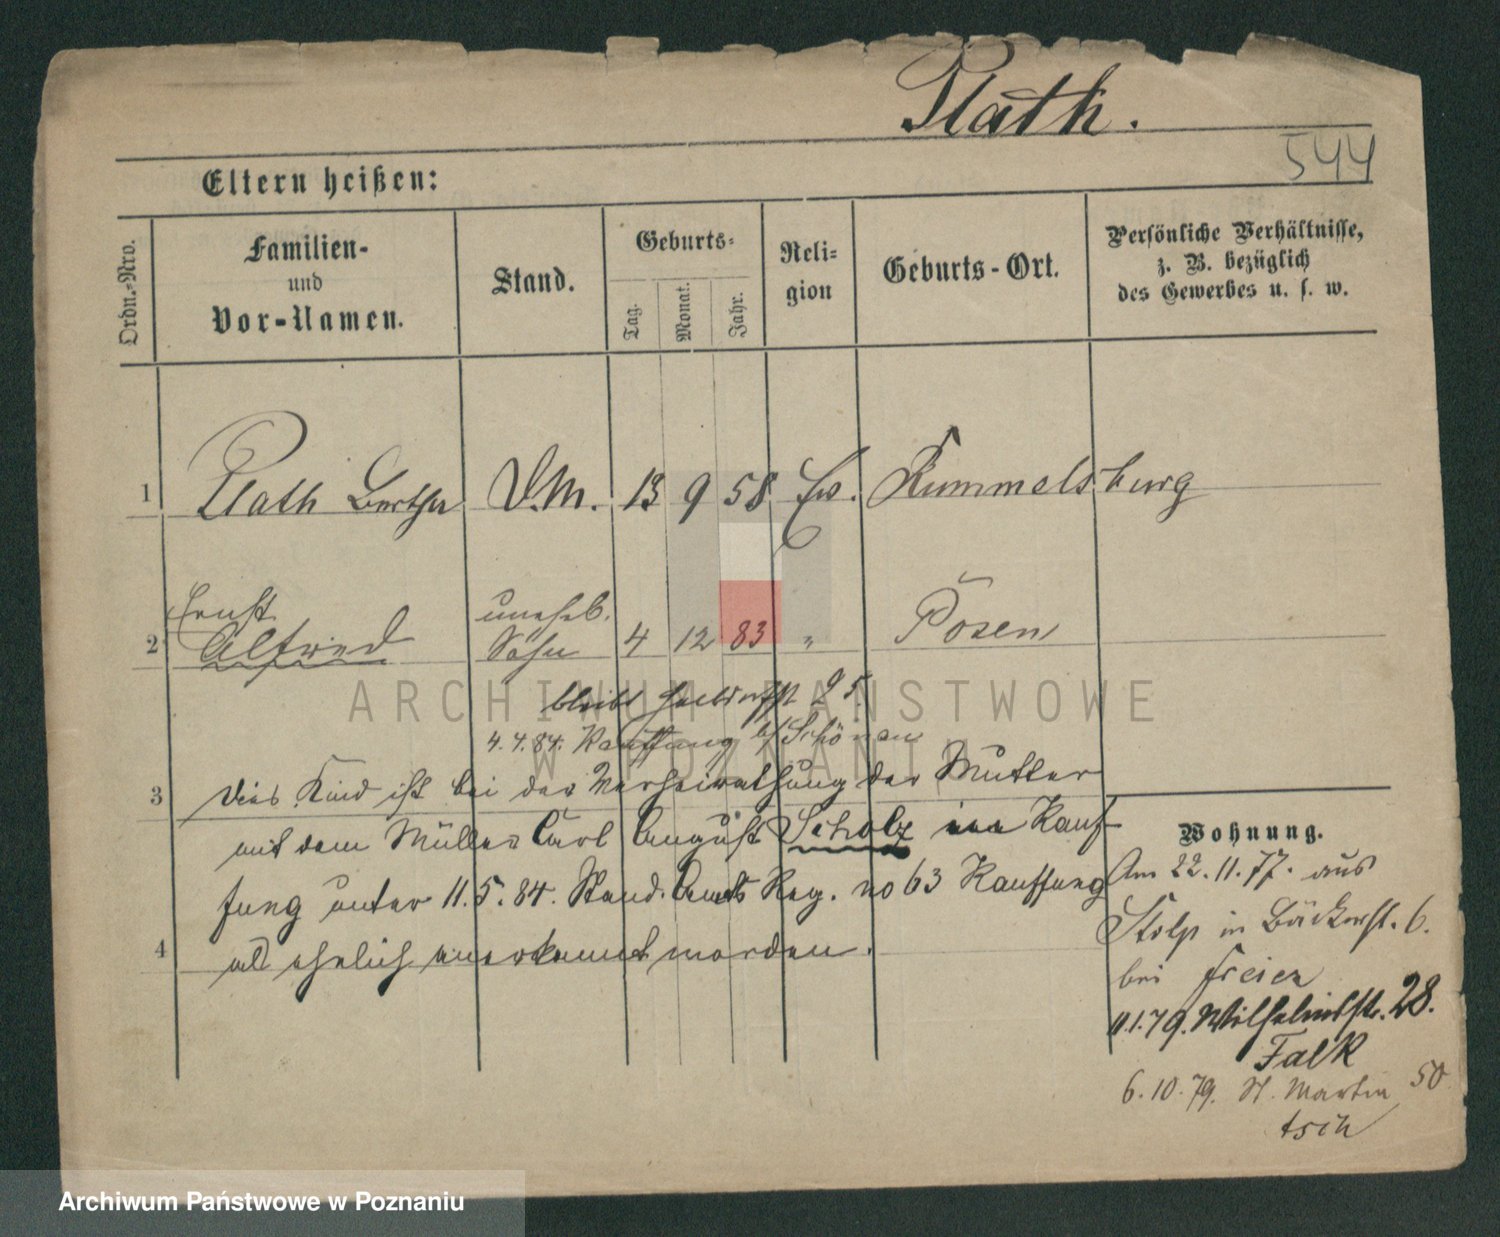 Plath.
544
Eltern heißen:
Ordn.-Nro.
Familien- und Vor-Namen.
Stand.
Geburts-
Tag.
Monat.
Jahr.
Reli-gion
Geburts-Ort.
Persönliche Verhältnisse, z. B. bezüglich des Gewerbes u. s. w.
1 Plath Bertha D.M. 13 9 58 Ev. Rummelsburg
Ernst unehel.
2 Alfried Sohn 4 12 83 " Posen
bleibt 25.
4.4.84. Kauffung b/ Schönau
3 Dies Kind ist bei der Verheirathung der Mutter
mit dem Müller Carl August Scholz in Kauf-
fung unter 11.5.84. Stand. Amts Reg. no 63 Kauffung
4 als ehelich anerkannt worden.
Wohnung.
Am 22.11.77. aus
Stolp in Bäckerst. 6.
bei Freier
11.1.79. Wilhelmstr. 28.
Falk
6.10.79. St. Martin 50
ARCHIWUM PAŃSTWOWE
W POZNANIU
Archiwum Państwowe w Poznaniu